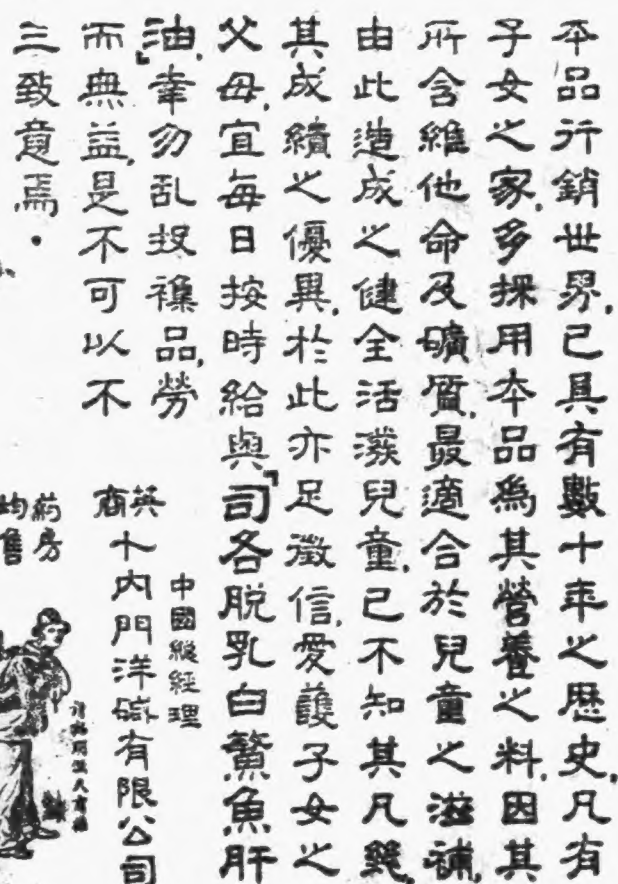 本品行銷世界,已具有數十年之歷史,凡有
子女之家,多採用本品爲其營養之料,因其
所含維他命及礦質,最適合於兒童之滋補,
由此造成之健全活潑兒童,已不知其凡幾,
其成績之優異,於此亦足徵信,愛護子女之
父母,宜每日按時給與『司各脫乳白鰵魚肝
油,』幸勿乱投襍品,勞
而無益,是不可以不
三致意焉.
中國総經理
英商卜內門洋碱有限公司
葯房
均售